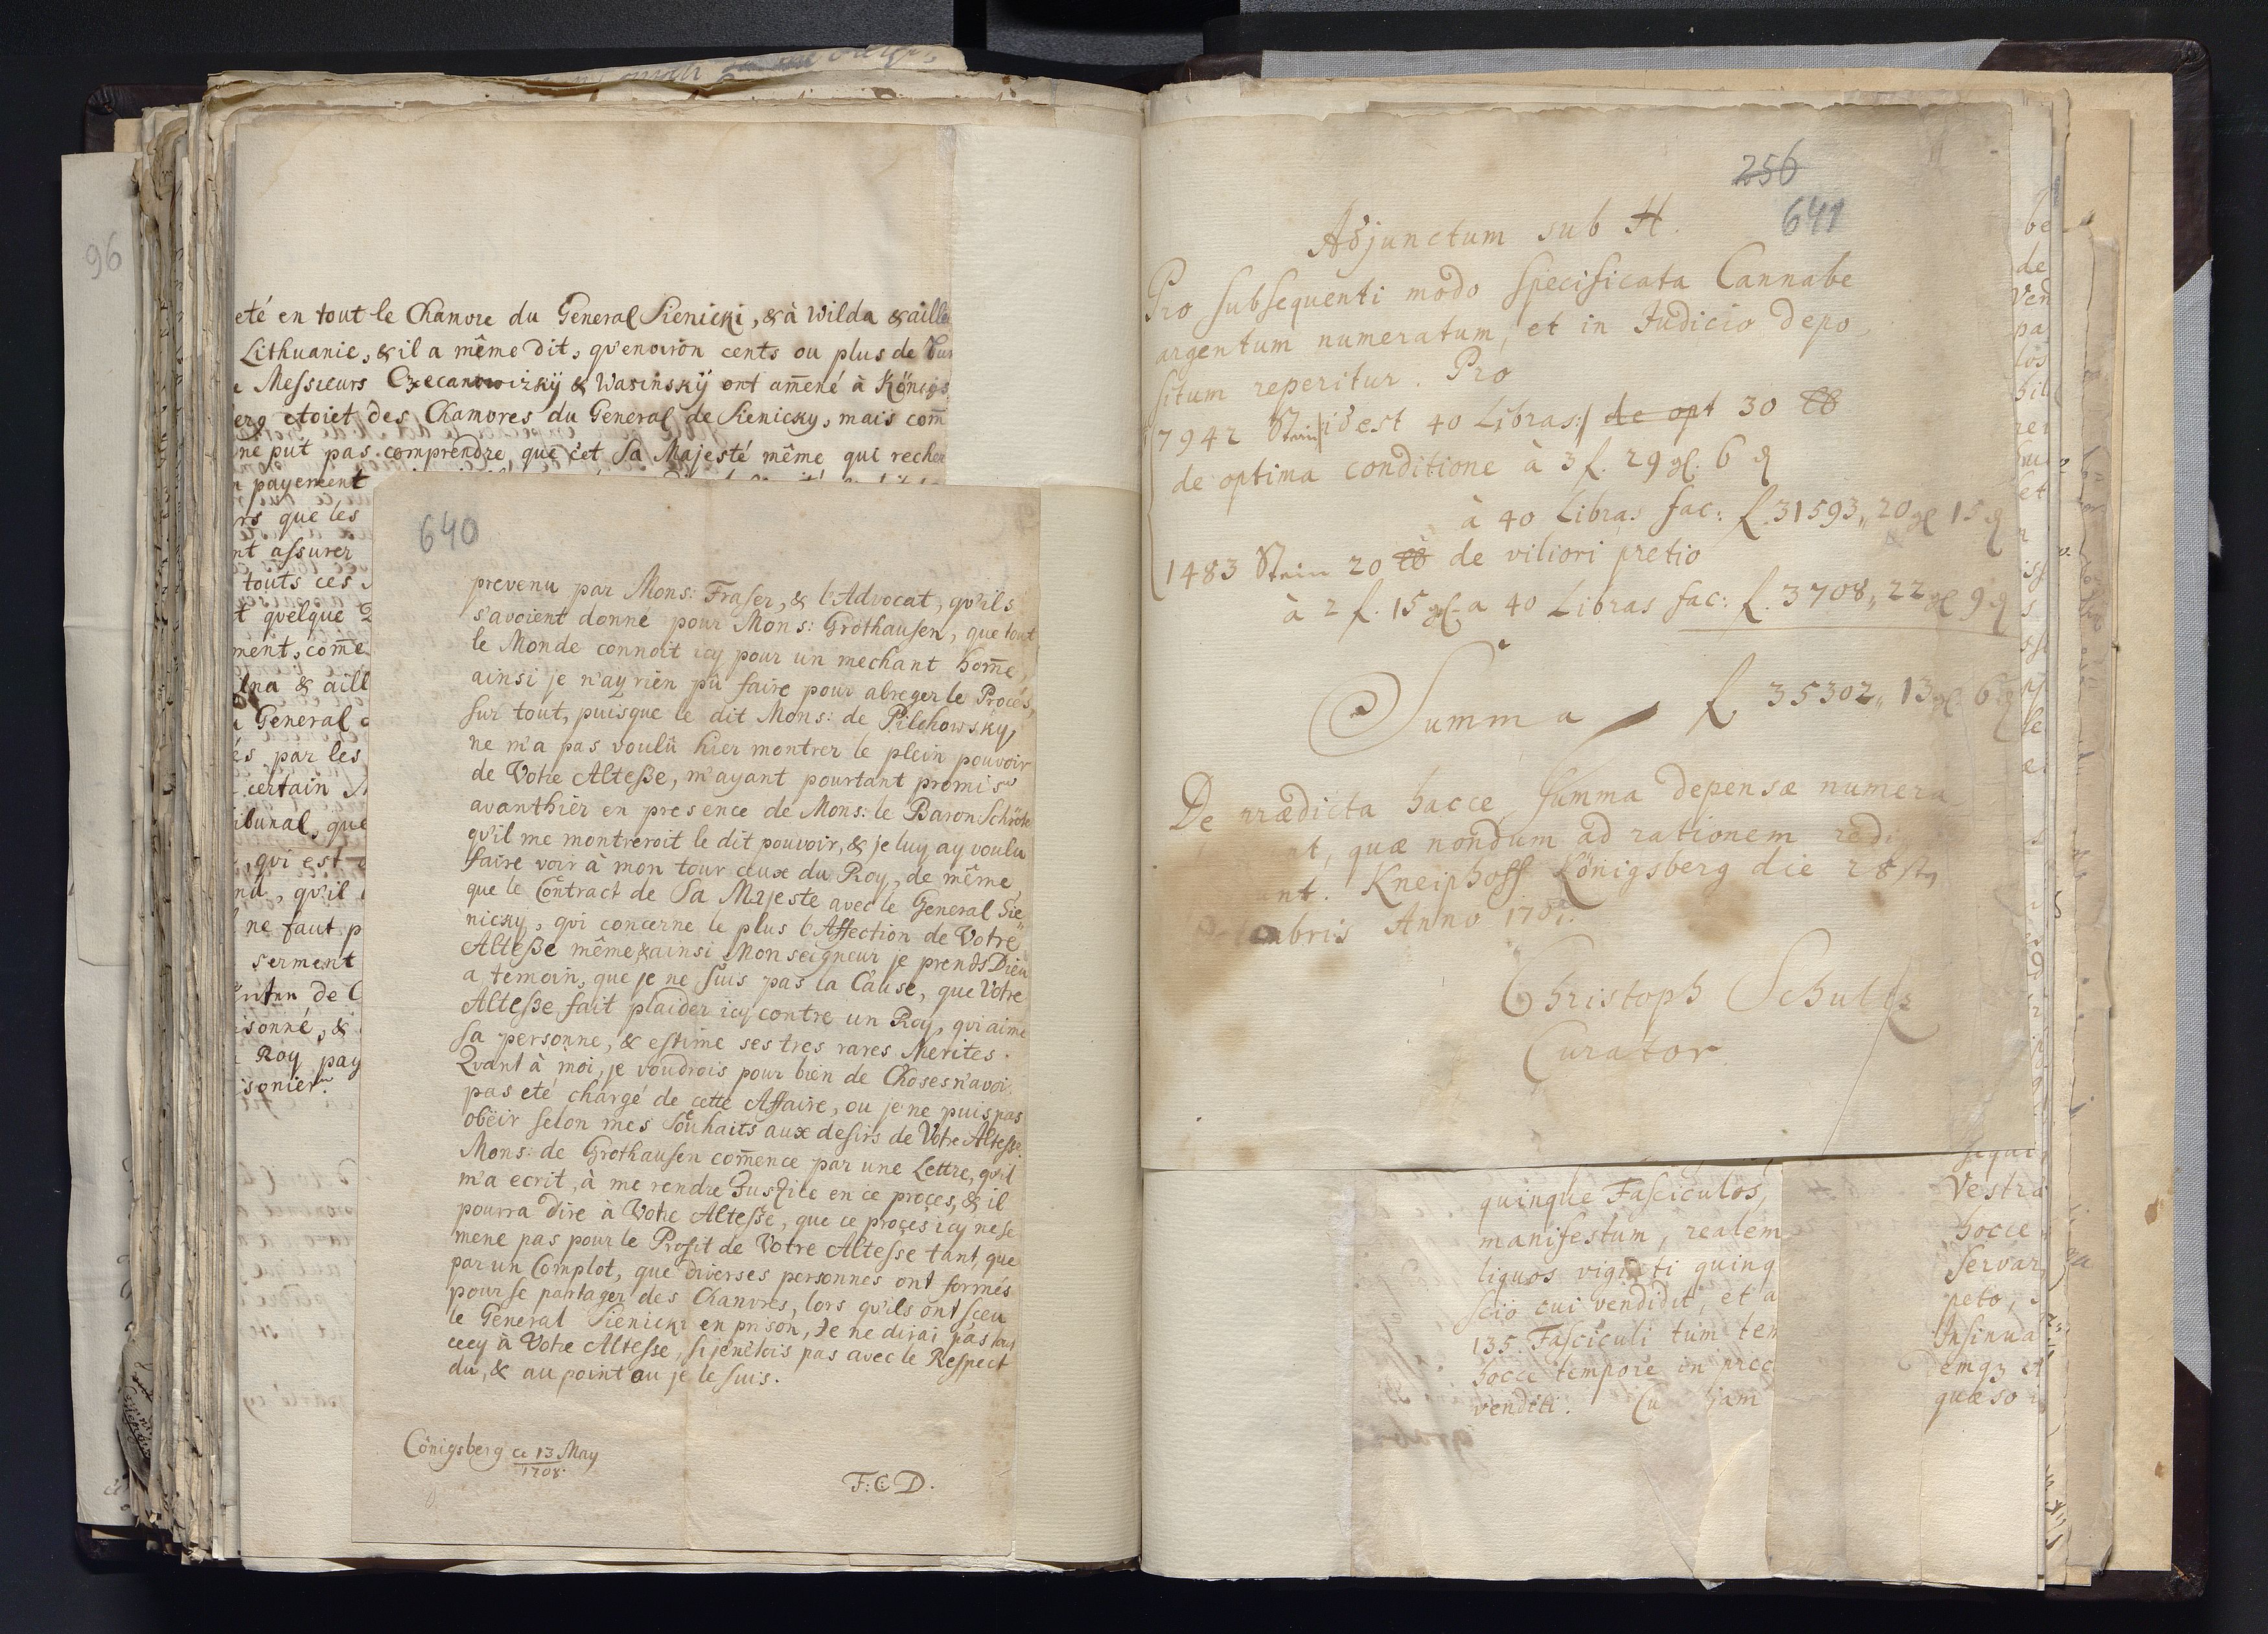 96
eté en tout le Chanvre du General Sienicki, & à Wilda & aille
Lithuanie, & il a même dit, qu'environ cents ou plus de
Messieurs Czecanowizkÿ & Wasinskÿ ont am̄ené à Königs
erg etoiet des Chanvres du General de Sienicky, mais com̄
ne put pas comprendre que c'et Sa Majesté même qui recher
payement
rs que les
nt assurer
touts ces
t quelque
ment, com̄e
lna & aill
General
és par les
certain
ibunal, que
, qui est
nu, qu'il
ne faut p
serment
de C
isonné, &
Roy pay
isonier.
640
prevenu par Mons: Fraser, & l'Advocat, qu'ils
s'avoient donné pour Mons: Grothausen, que tout
le Monde connoit icy pour un mechant hom̄e,
ainsi je n'ay rien pû faire pour abreger le Procés,
sur tout, puisque le dit Mons: de Pilchowsky,
ne m'a pas voulû hier montrer le plein pouvoir
de Votre Alteße, m'ayant pourtant promis
avanthier en presence de Mons: le Baron Schröte
qu'il me montreroit le dit pouvoir, & je luy ay voulu
faire voir à mon tour ceux du Roy, de même,
que le Contract de Sa Majeste avec le General Sie
nicky, qui concerne le plus l'Affection de Votre
Alteße même, & ainsi Monseigneur je prends Dieu
a temoin, que je ne suis pas la Cause, que Votre
Alteße fait plaider icy contre un Roy, qui aime
sa personne, & estime ses tres rares Merites.
Qvant à moi, je voudrois pour bien de Choses n'avoi
pas eté chargé de cette Affaire, ou je ne puis pas
obëir selon mes Souhaits aux desirs de Votre Altesse.
Mons: de Grothausen com̄ence par une Lettre, qu'il
m'a ecrit, à me rendre Justice en ce proces, & il
pourra dire à Votre Alteße, que ce proces icy ne se
mene pas pour le Profit de Votre Altesse tant, que
par un Complot, que diverses personnes ont formés
pour se partager des Chanvres, lors qu'ils ont sceu
le General Sienicki en prison, Je ne dirai pas tout
cecy à Votre Altesse, si je n'étois pas avec le Respect
du, & au point ou je le suis.
Cönigsberg ce 13 May
1708.
F: C: D.
256
641
Adjunctum sub H.
Pro subsequenti modo specificata Cannabe
argentum numeratum, et in Judicio depo
situm reperitur. Pro
7942 Stein |id est 40 Libras:| de opt 30 ℔
de optima conditione à 3 f. 29 gl. 6 ₰
à 40 Libras fac: f. 31593,, 20 gl 15 ₰
1483 Stein 20 ℔ de viliori pretio
à 2 f. 15 gl. a 40 Libras fac: f. 3708,, 22 gl 9 ₰
Summa f. 35302,, 13 gl 6 ₰
De prædicta hacce summa depensæ numera
nt, quæ nondum ad rationem redi
unt. Kneiphoff Königsberg die 28
mbris Anno
Christoph Schultz
Curator
quinque Fasciculos,
manifestum, realem
liquos viginti quinq
scio cui vendidit, et a
135. Fasciculi tum tem
hocce tempore in prec
venditi. Cu jam
Vestra
hocce
servar
peto,
Insinua
demq3 et
quæso
be
de
Ven
pa